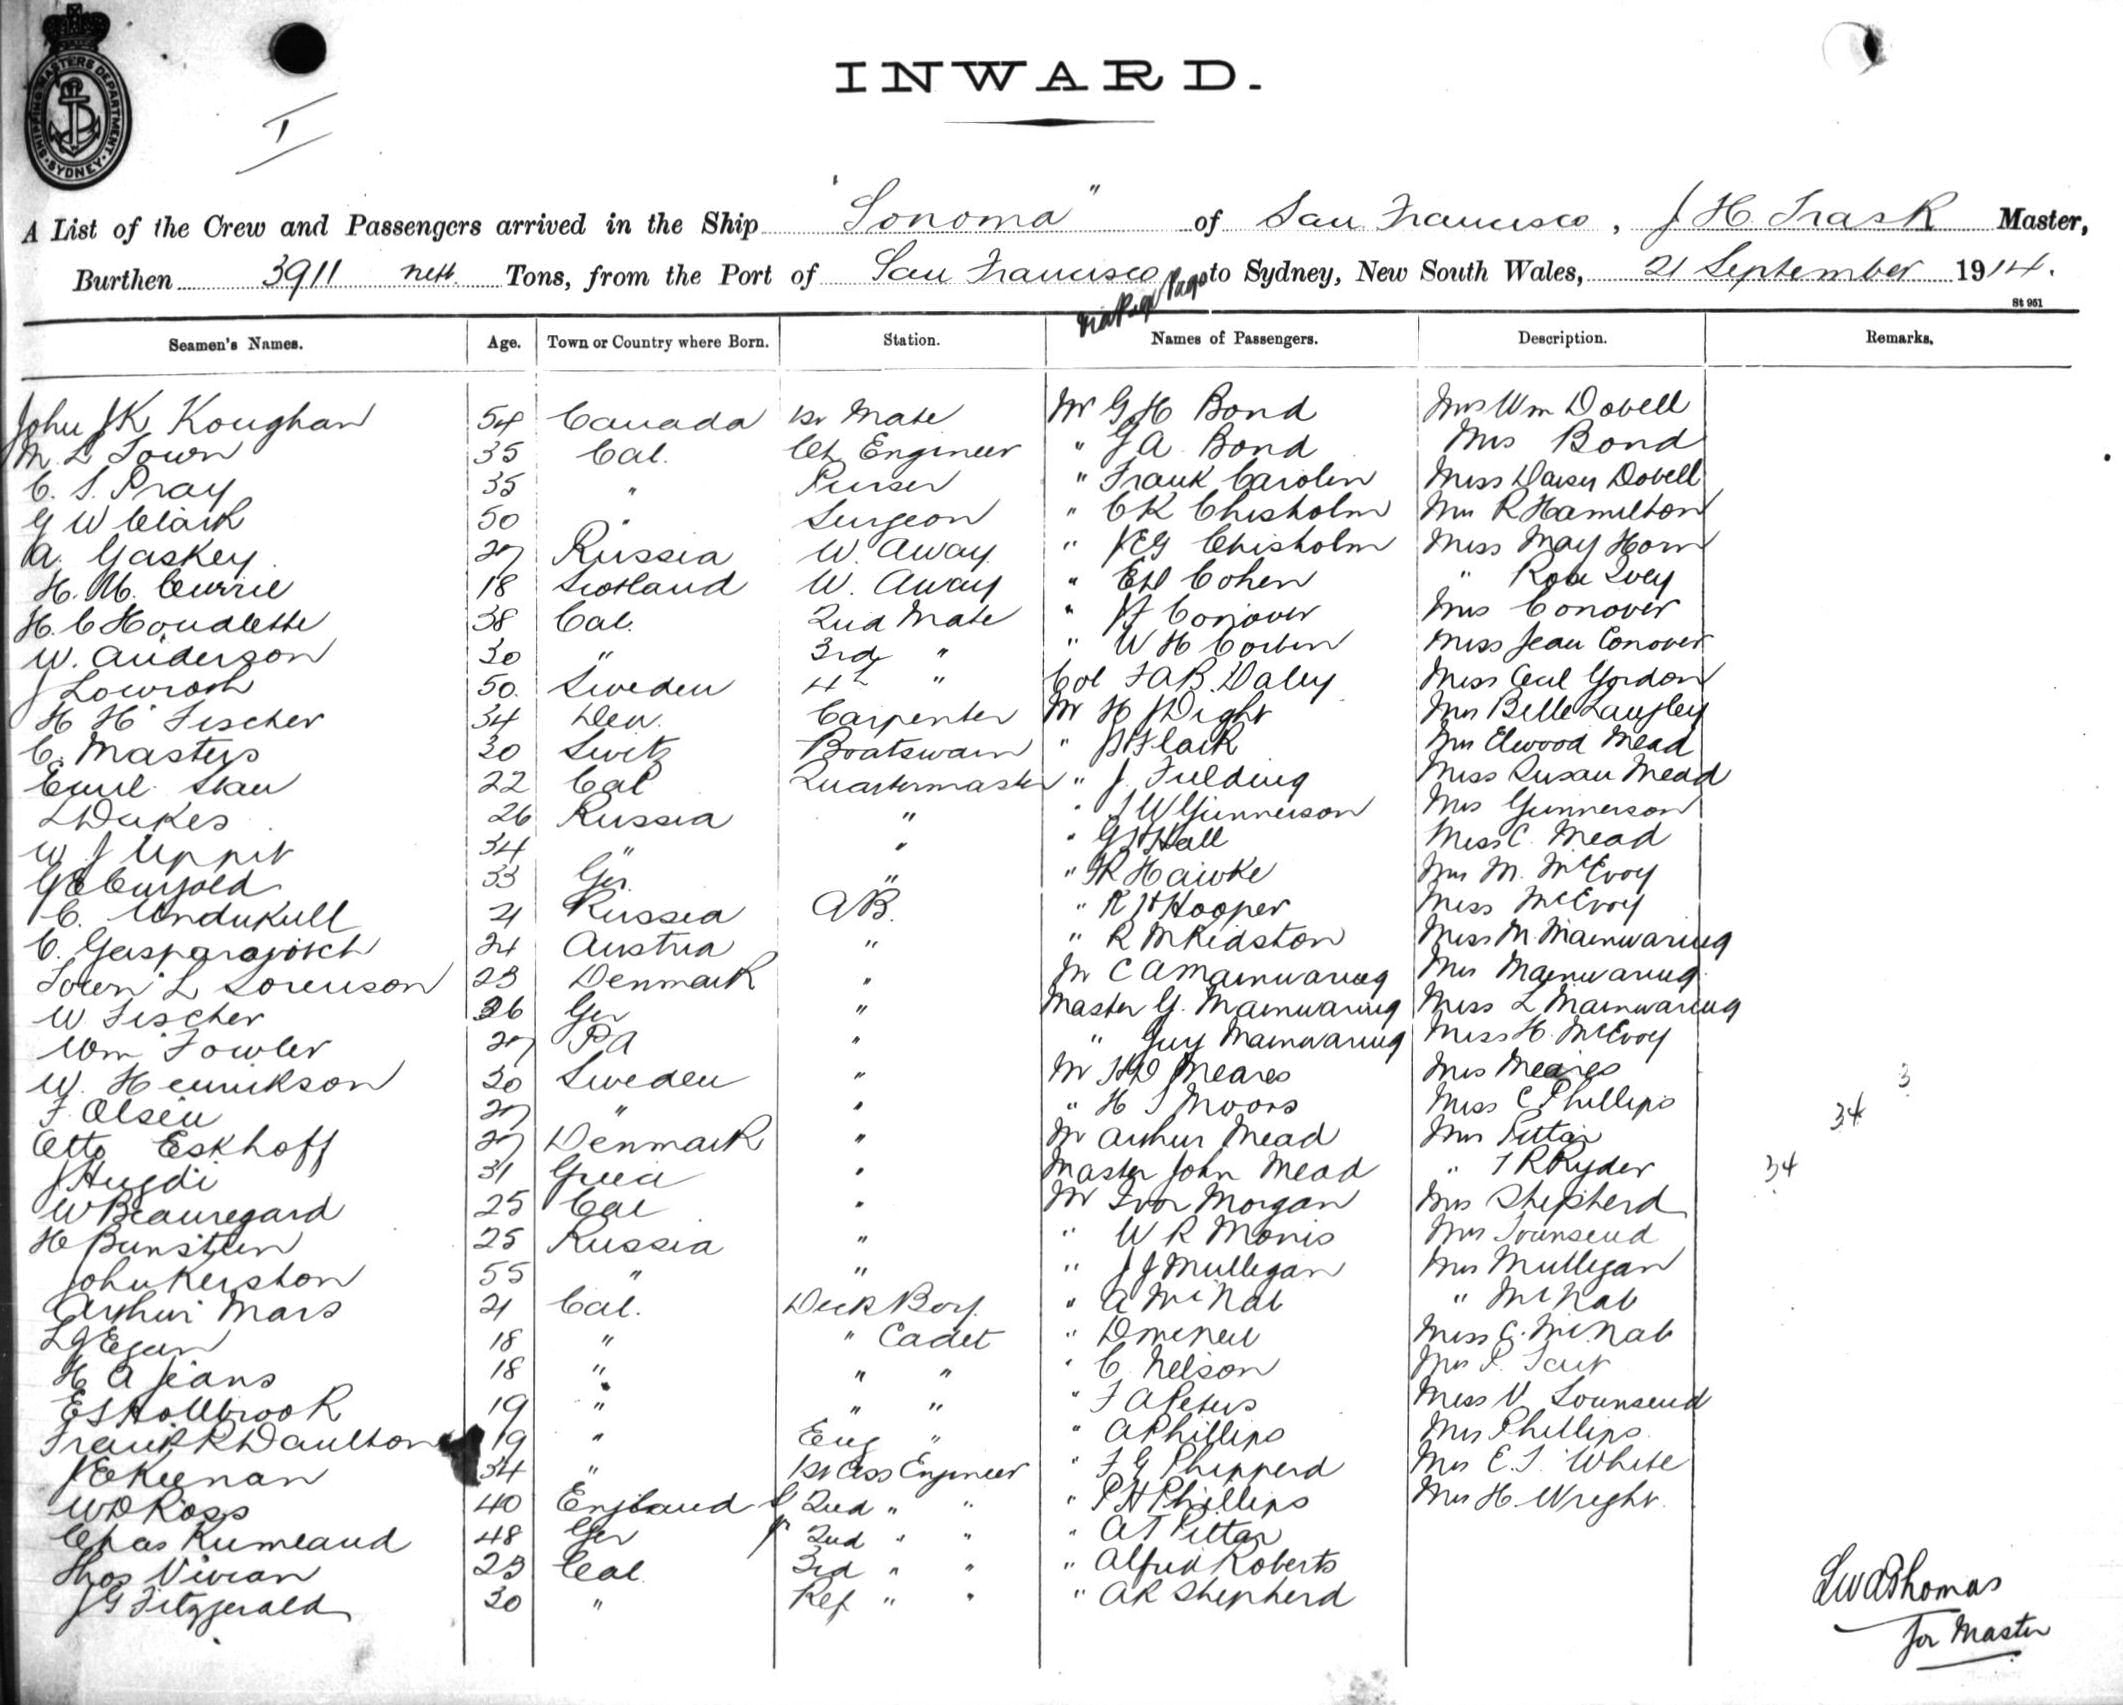 SHIPPING MASTERS DEPARTMENT SYDNEY
I
INWARD.
A List of the Crew and Passengers arrived in the Ship "Sonoma" of San Francisco, J H. Trask Master,
Burthen 3911 nett Tons, from the Port of San Francisco via Pago Pago to Sydney, New South Wales, 21 September 1914.
St 961
Seamen's Names. Age. Town or Country where Born. Station. Names of Passengers. Description. Remarks.
John JK Koughan 54 Canada 1st Mate Mr G H Bond Mrs Wm Dovell
M. L Town 35 Cal. Ch Engineer " G A Bond Mrs Bond
C. S. Pray 35 " Purser " Frank Carolin Miss Daisy Dovell
G W Clark 50 " Surgeon " C K Chisholm Mrs R Hamilton
A. Gaskey 27 Russia W. Away " J E G Chisholm Miss May Horn
H. M. Currie 18 Scotland W. Away " E D Cohen "
H. C Houdlette 38 Cal. 2nd Mate " Conover Mrs Conover
W. Anderson 30 " 3rd " " W H Corbin Miss Jean Conover
J 50. Sweden 4th " Col F A B. Daley Miss Cecil Gordon
H H Fischer 34 Den. Carpenter Mr H J Dight Mrs Belle Langley
C. Masters 30 Switz Boatswain " Flack Mrs Elwood Mead
Emil Stau 22 Cal Quartermaster " J. Fielding Miss Susan Mead
L Dukes 26 Russia " " W Gunnerson Mrs Gunnerson
W J Uppit 34 " " " G H Hall Miss C. Mead
G E 33 Ger. " " Hawke Mrs M. McEvoy
C. Undukull 21 Russia AB. " R H Hooper Miss McEvoy
C. Gasparovitch 24 Austria " " R M Kidston Miss M. Mainwaring
L Sorenson 23 Denmark " Mr C A Mainwaring Mrs Mainwaring
W Fischer 26 Ger " Master G. Mainwaring Miss L Mainwaring
Wm Fowler 27 PA " " Guy Mainwaring Miss H. McEvoy
W. Henrikson 30 Sweden " Mr H D Meares Mrs Meares 3
F. Olsen 27 " " " H S Moors Miss C Phillips 34
Otto Eskhoff 27 Denmark " Mr Arthur Mead Mrs Pittar
J Hugdi 31 Greece " Master John Mead " T R Ryder 34
W Beauregard 25 Cal " Mr Ivor Morgan Mrs Shepherd
H Bunstein 25 Russia " " W R Morris Mrs Townsend
John Kerston 55 " " " J J Mulligan Mrs Mulligan
Arthur Mars 21 Cal. Deck Boy. " A McNab " McNab
L J Egan 18 " " Cadet " D McNeil Miss C. McNab
H A Jeans 18 " " " " C. Nelson Mrs P. Tait
E S Hollbrook 19 " " " " F A Peters Miss V. Townsend
Frank R Daulton 19 " Eng " " A Phillips Mrs Phillips
J E Keenan 34 " 1st Ass Engineer " F G Phipperd Mrs E. S. White
W D Ross 40 England S 2nd " " " P H Phillips Mrs H. Wright.
Chas Rumeaud 48 Ger Jr 2nd " " " A T Pittar
Thos Vivian 23 Cal. 3rd " " " Alfred Roberts
J G Fitzgerald 30 " Ref " " " A R Shepherd
Thomas
for Master